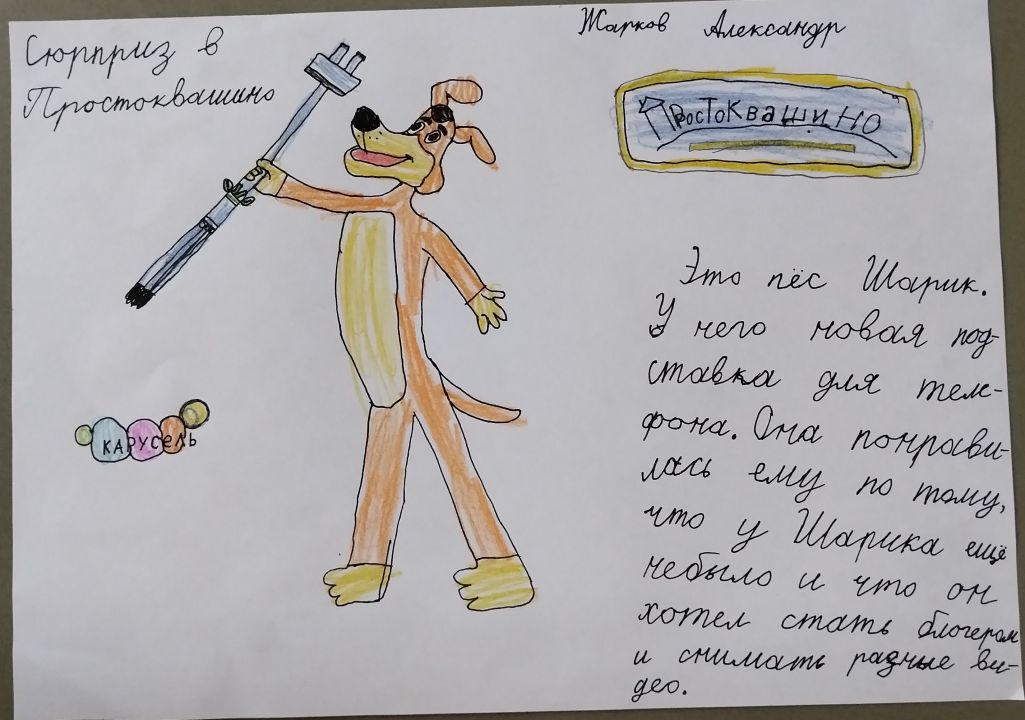 Сюрприз в
Простоквашино
Жарков Александр
ПРОСТОКВАШИНО
КАРУСЕЛЬ
Это пёс Шарик.
У него новая под-
ставка для теле-
фона. Она понрави-
лась ему по тому,
что у Шарика ещё
небыло и что он
хотел стать блогером
и снимать разные ви-
део.